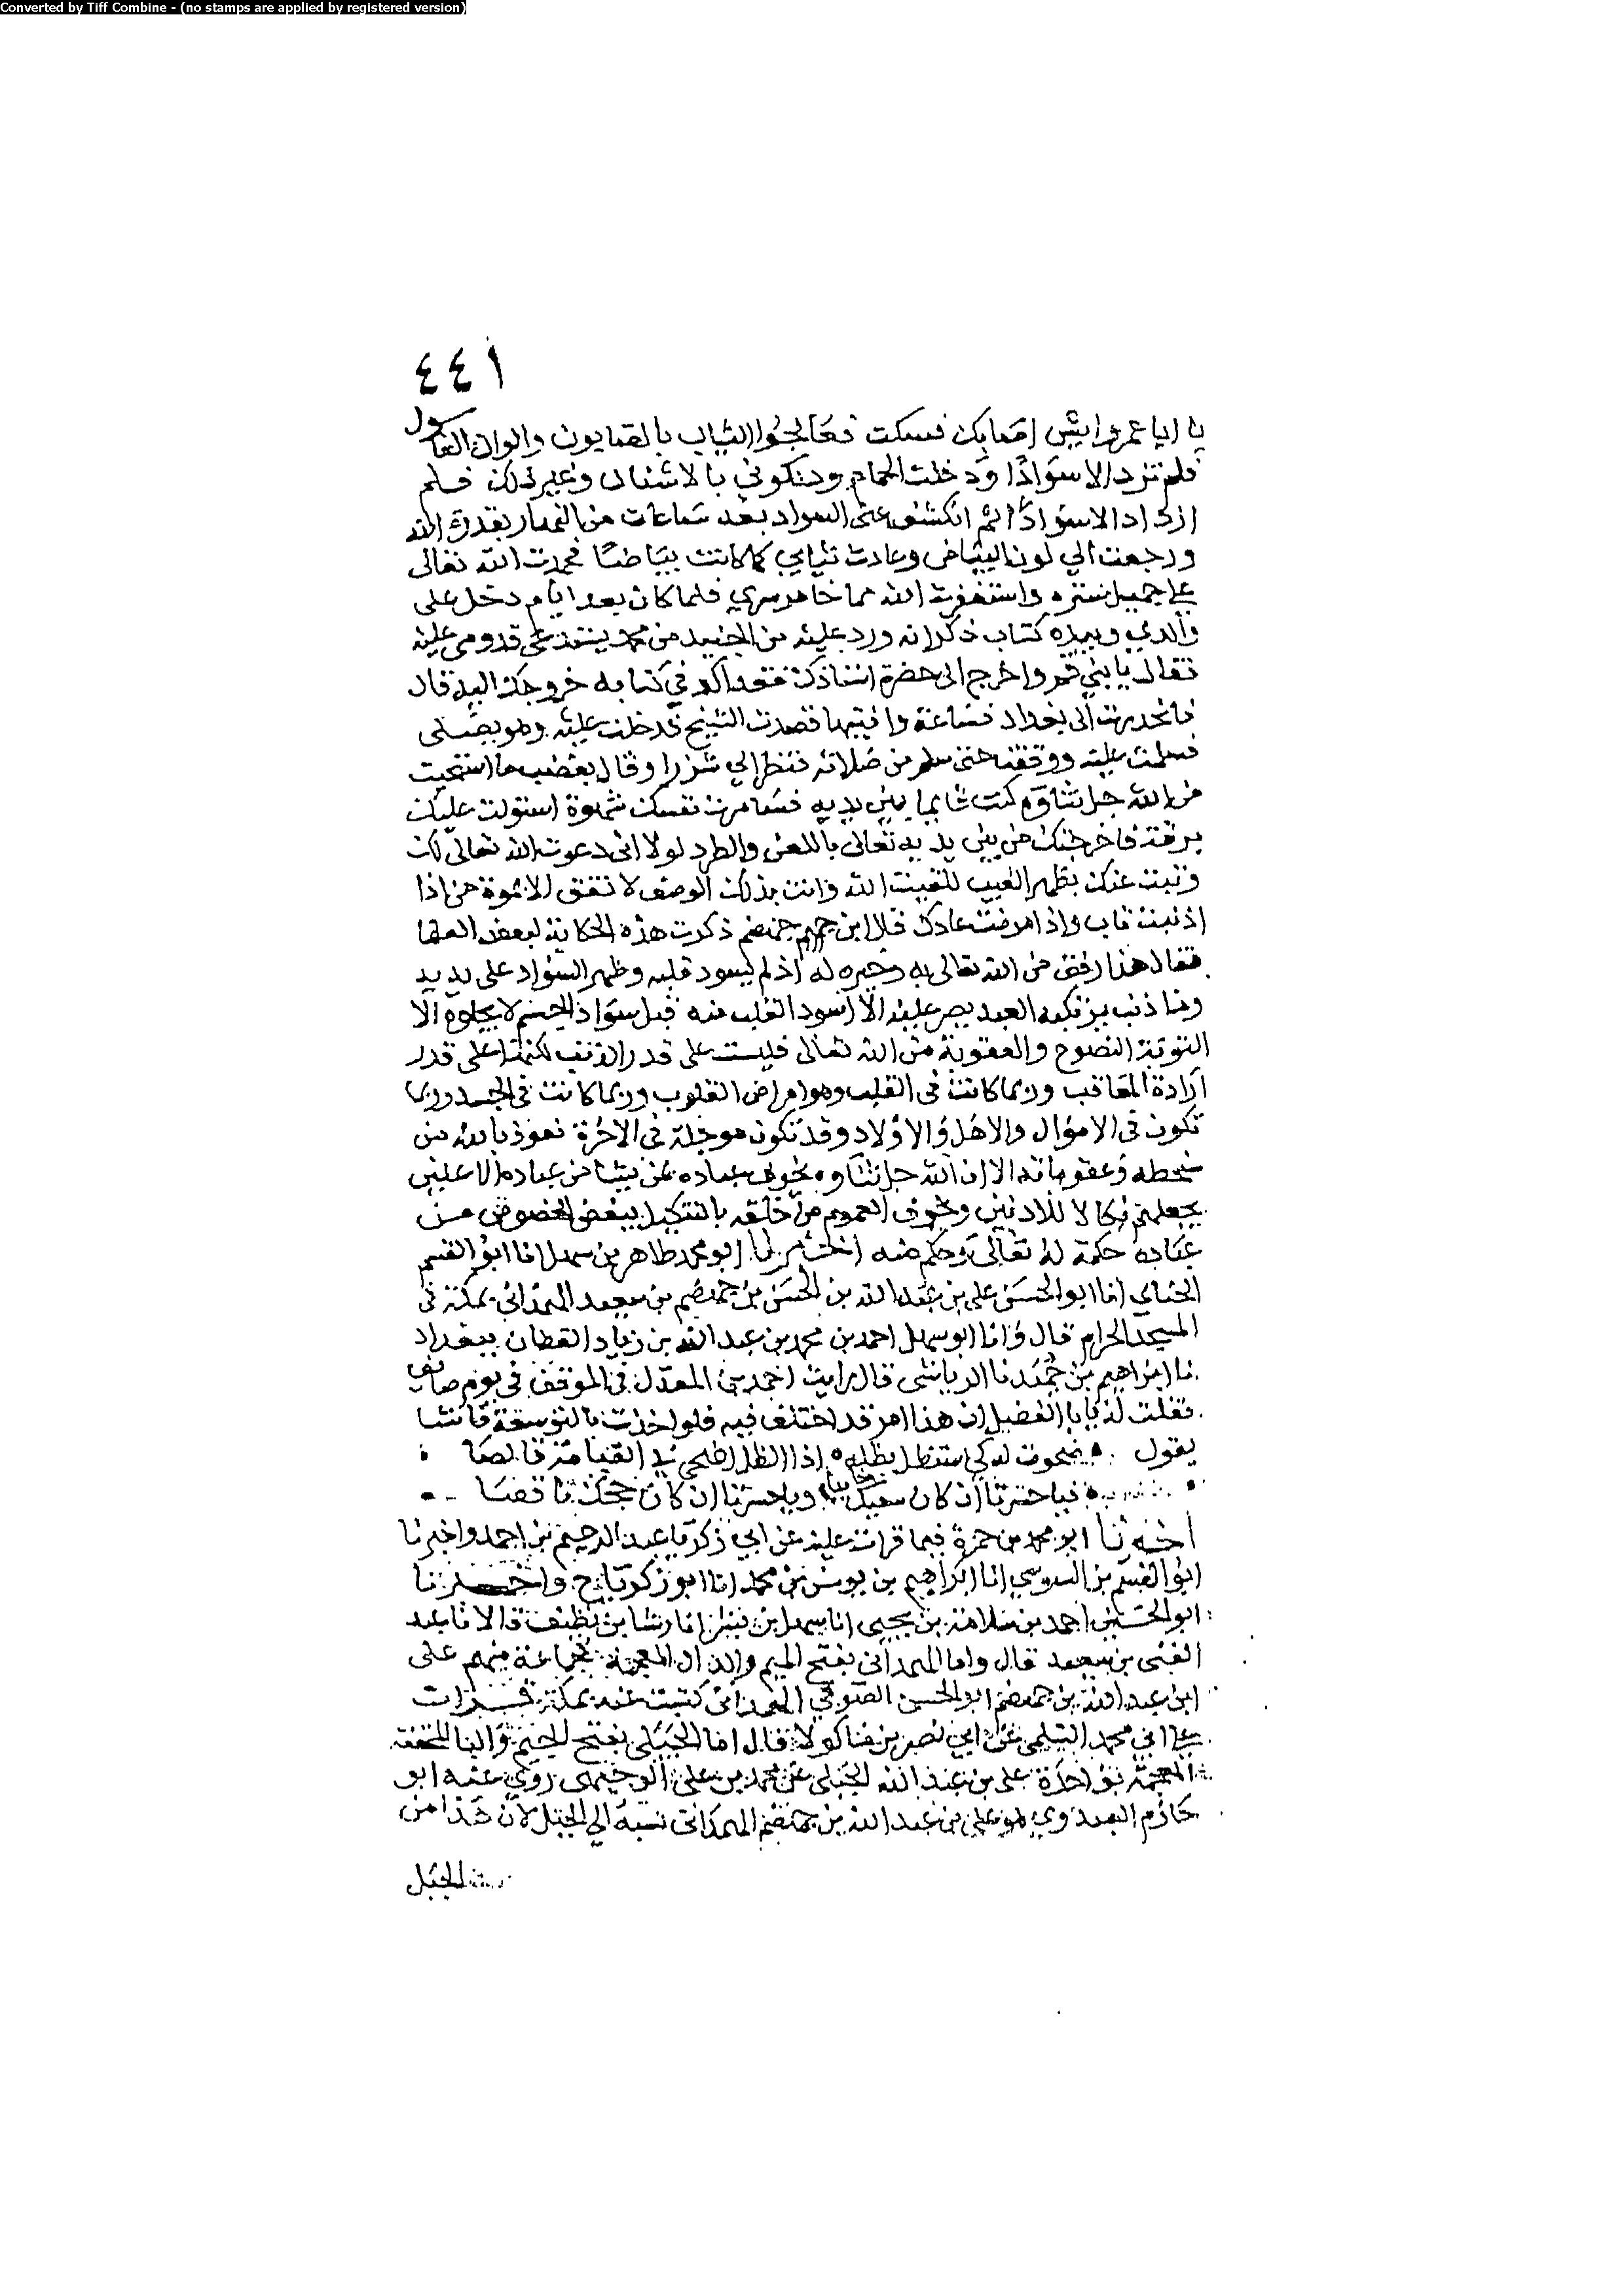 Converted by Tiff Combine - (no stamps are applied by registered version)
٤٤١
يا ابا عمرو ايش اصابك فسكت فعالجوا الثياب بالصابون والوان الغاسول
فلم تزد الا سوادا ودخلت الحمام ودلكوني بالاشنان وغير ذلك فلم
ازدد الا سوادا ثم انكشف عني السواد بعد ساعات من النهار بقدرة الله
ورجعت الي لون البياض وعادت ثيابي كما كانت بياضا فحمدت الله تعالى
علي جميل ستره واستغفرت الله مما خامر سري فلما كان بعد ايام دخل علي
والدي وبيده كتاب ذكر انه ورد عليه من الجنيد بن محمد يستدعي قدومي عليه
فقال يا بني قم واخرج الى حضرة استاذك فقد اكد في كتابه خروجك اليه قال
فانحدرت الى بغداد فساعة وافيتها قصدت الشيخ فدخلت عليه وهو يصلى
فسلمت عليه ووقفت حتى سلم من صلاته فنظر الي شزرا وقال بغضب ما استحيت
من الله جل ثناؤه كنت قائما بين يديه فسامرت نفسك شهوة استولت عليك
برقة فاخرجتك من بين يديه تعالى باللعن والطرد لولا اني دعوت الله تعالى لك
وتبت عنك بظهر الغيب للقيت الله وانت بذلك الوصف لا تفق الاخوة من اذا
اذنبت تاب واذا مرضت عادك قال ابن جهضم ذكرت هذه الحكاية لبعض العلما
فقال هذا رفق من الله تعالى به وخيره له اذ لم يسود قلبه وظهر السواد على يديه
وما ذنب يرتكبه العبد يصر عليه الا اسود القلب منه قبل سواد الجسم لا يجلوه الا
التوبة النصوح والعقوبة من الله تعالى فليست على قدر الذنب لكنها على قدر
ارادة المعاقب وربما كانت في القلب وهو امراض القلوب وربما كانت في الجسد وربما
تكون في الاموال والاهل والاولاد وقد تكون موجلة في الاخرة نعوذ بالله من
سخطه وعقوباته الا ان الله جل ثناؤه يخوف عباده بمن يشا من عباده الاعلين
يجعلهم نكالا للادنين ويخوف العموم من خلقه بالتنكيل ببعض الخصوص من
عباده حكمة له تعالى وحكم منه اخبرنا ابو محمد طاهر بن سهل انا ابو القسم
الحناي انا ابو الحسن علي بن عبد الله بن الحسن بن جهضم بن سعيد الهمذاني بمكة في
المسجد الحرام قال وانا ابو سهل احمد بن محمد بن عبد الله بن زياد القطان ببغداد
نا ابراهيم بن حميد نا الرياشي قال رايت احمد بن المعدل في الموقف في يوم صايف
فقلت له يا با الفضيل ان هذا امر قد اختلف فيه فلو اخذت بالتوسعة فانشا
يقول ضحوت له كي استظل بظله اذا الظل اضحى في القيامة قالصا
فيا حسرتا ان كان سعيك خايبا ويا حسرتا ان كان حجك ناقصا
اخبرنا ابو محمد بن حمزة فيما قرات عليه عن ابي زكريا عبد الرحيم بن احمد واخبرنا
ابو القسم بن السوسي انا ابراهيم بن يونس بن محمد انا ابو زكريا ح واخبرنا
ابو الحسين احمد بن سلامة بن يحيى انا سهل بن بشر انا رشا بن نظيف قالا نا عبد
الغني بن سعيد قال واما الهمذاني بفتح الميم والذال المعجمة فجماعة منهم علي
ابن عبد الله بن جهضم ابو الحسن الصوفي الهمذاني كتبت عنه بمكة قرات
علي ابي محمد السلمي عن ابي نصر بن ماكولا قال اما الجبلي بفتح الجيم والبا المخففة
المعجمة بواحدة علي بن عبد الله الجبلي عن محمد بن علي الوجيهي روى عنه ابو
حازم العبدوي هو علي بن عبد الله بن جهضم الهمذاني نسبه الي الجبل لان همذا من
الجبل